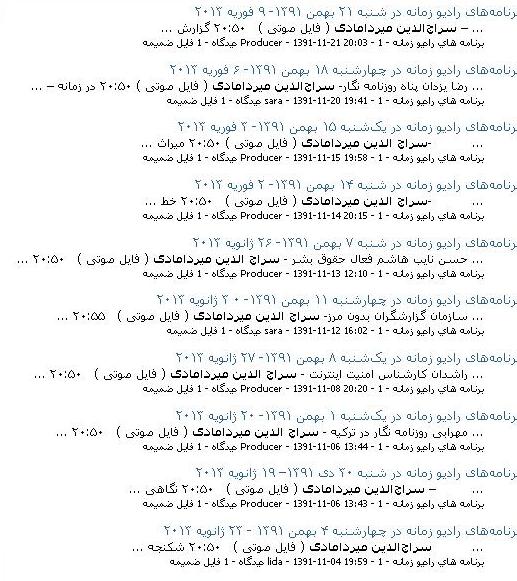 برنامه‌های رادیو زمانه در شنبه ۲۱ بهمن ۱۳۹۱- ۹ فوریه ۲۰۱۳
... – سراج‌الدین میردامادی ( فایل صوتی ) ۲۰:۵۰ گزارش ...
برنامه های رادیو زمانه - 1 - 20:03 21-11-1391 - Producer دیدگاه - 1 فایل ضمیمه
برنامه‌های رادیو زمانه در چهارشنبه ۱۸ بهمن ۱۳۹۱- ۶ فوریه ۲۰۱۳
... رضا یزدان پناه روزنامه نگار- سراج‌الدین میردامادی ( فایل صوتی ) ۲۰:۵۰ در زمانه – ...
برنامه های رادیو زمانه - 1 - 19:41 20-11-1391 - sara دیدگاه - 1 فایل ضمیمه
برنامه‌های رادیو زمانه در یک‌شنبه ۱۵ بهمن ۱۳۹۱- ۳ فوریه ۲۰۱۳
... -سراج الدین میردامادی ( فایل صوتی ) ۲۰:۵۰ میراث ...
برنامه های رادیو زمانه - 1 - 19:58 15-11-1391 - Producer دیدگاه - 1 فایل ضمیمه
برنامه‌های رادیو زمانه در شنبه ۱۴ بهمن ۱۳۹۱- ۲ فوریه ۲۰۱۳
... -سراج الدین میردامادی ( فایل صوتی ) ۲۰:۵۰ خط ...
برنامه های رادیو زمانه - 1 - 20:15 14-11-1391 - Producer دیدگاه - 1 فایل ضمیمه
برنامه‌های رادیو زمانه در شنبه ۷ بهمن ۱۳۹۱- ۲۶ ژانویه ۲۰۱۳
... حسن نایب هاشم فعال حقوق بشر - سراج الدین میردامادی ( فایل صوتی ) ۲۰:۵۰ ...
برنامه های رادیو زمانه - 1 - 12:10 13-11-1391 - Producer دیدگاه - 1 فایل ضمیمه
برنامه‌های رادیو زمانه در چهارشنبه ۱۱ بهمن ۱۳۹۱- ۳۰ ژانویه ۲۰۱۳
... سازمان گزارشگران بدون مرز- سراج الدین میردامادی ( فایل صوتی ) ۲۰:۵۵ ...
برنامه های رادیو زمانه - 1 - 16:02 12-11-1391 - sara دیدگاه - 1 فایل ضمیمه
برنامه‌های رادیو زمانه در یک‌شنبه ۸ بهمن ۱۳۹۱- ۲۷ ژانویه ۲۰۱۳
... راشدان کارشناس امنیت اینترنت - سراج الدین میردامادی ( فایل صوتی ) ۲۰:۵۰ ...
برنامه های رادیو زمانه - 1 - 20:20 08-11-1391 - Producer دیدگاه - 1 فایل ضمیمه
برنامه‌های رادیو زمانه در یک‌شنبه ۱ بهمن ۱۳۹۱- ۲۰ ژانویه ۲۰۱۳
... مهرابی روزنامه نگار در ترکیه - سراج الدین میردامادی ( فایل صوتی ) ۲۰:۵۰ ...
برنامه های رادیو زمانه - 1 - 13:44 06-11-1391 - Producer دیدگاه - 1 فایل ضمیمه
برنامه‌های رادیو زمانه در شنبه ۳۰ دی ۱۳۹۱– ۱۹ ژانویه ۲۰۱۳
... – سراج‌الدین میردامادی ( فایل صوتی ) ۲۰:۵۰ نگاهی ...
برنامه های رادیو زمانه - 1 - 13:43 06-11-1391 - Producer دیدگاه - 1 فایل ضمیمه
برنامه‌های رادیو زمانه در چهارشنبه ۴ بهمن ۱۳۹۱ - ۲۳ ژانویه ۲۰۱۳
... سراج‌الدین میردامادی ( فایل صوتی ) ۲۰:۵۰ شکنجه ...
برنامه های رادیو زمانه - 1 - 19:59 04-11-1391 - lida دیدگاه - 1 فایل ضمیمه